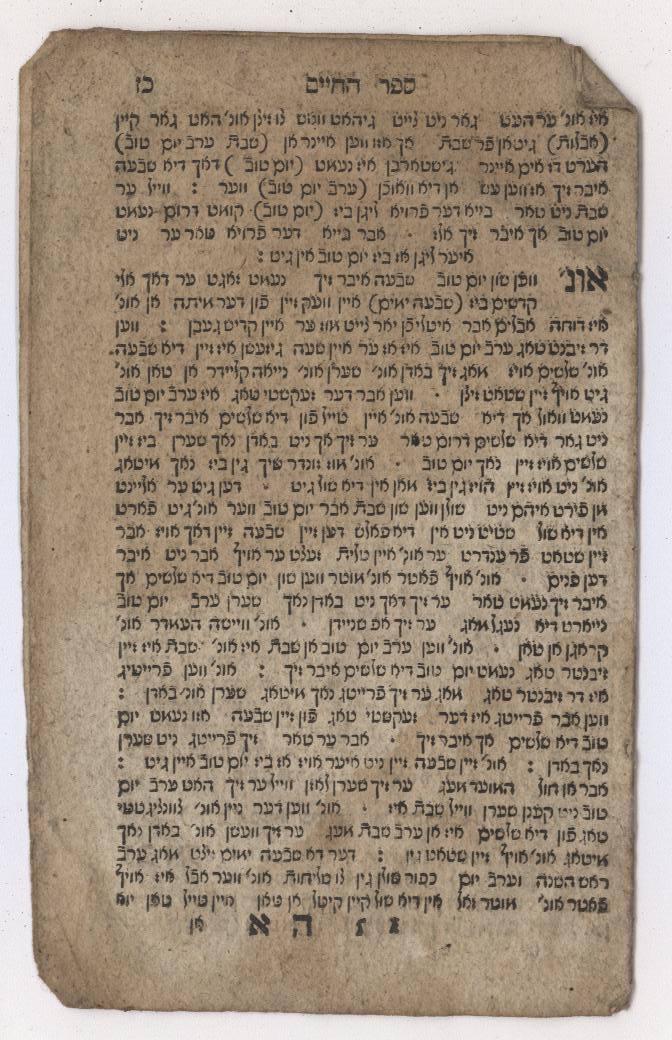 ספר החיים כז
איז אונ' ער העט גאר ניט לייט גיהאט וואש צו זיצן אונ' האט גאר קיין
(אבלות) גיטאן פר שבת אך אזו ווען איינר אן (שבת ערב יום טוב)
הערט דו אים איינר גישטארבן איז נעאט (יום טוב) דאך דיא שבעה
איבר זיך אזו ווען עש אן דיא וואוכן (ערב יום טוב) ווער : ווייל ער
שבת ניט טאר בייא דער פרויא ליגן ביז (יום טוב) קומט דרום נעמט
יום טוב אך איבר זיך אלז אבר בייא דער פרויא טאר ער ניט
איער ליגן אז ביז יום טוב אין גיט :
אונ' ווען שון יום טוב שבעה איבר זיך נעמט זאגט ער דאך אלי
קדשים ביז (שבעה ימים) איין וועק זיין פון דער מיתה אן אונ'
ווען : איז דוחה אבלים אבר איטליכן יאר צייט אוז ער איין קדיש געבן
דר זיבנט טאג ערב יום טוב איז אז ער איין שעה גיזעשן איז זיין דיא שבעה
אונ' שלשים אויז מאג זיך באדן אונ' שערן אונ' נייאה קליידר אן טאן אונ'
גיט אויף זיין שטאט זיצן ווען אבר דער זעקשטי טאג איז ערב יום טוב
נעמט וואול אך דיא שבעה אונ' איין טייל פון דיא שלשים איבר זיך אבר
ניט גאר דיא שלשים דרום טאר ער זיך אך ניט באדן נאך שערן ביז זיין
שלשים אויז זיין נאך יום טוב אונ' אוז אונדר שיך גין ביז נאך מיטאג
אונ' ניט אויז זיין הויז גין ביז מאן אין דיא שול גיט דען גיט ער אליינט
אן פירט איהם ניט שולן ווען שון שבת אבר יום טוב ווער אונ' גיט פארט
אין דיא שול שטיט ניט אין דיא פאלש דען זיין שבעה זיין דאך אויז אבר
זיין שטאט פר ענדרט ער אונ' איין טלית זעצט ער אויף אבר ניט איבר
דען פנים אונ' אויף פאטר אונ' מוטר ווען שון יום טוב דיא שלשים אך
איבר זיך נעמט טאר ער זיך דאך ניט באדן נאך שערן ערב יום טוב
נייארט דיא נעגל מאג ער זיך אפ שניידן אונ' ווייסה העמדר אונ'
קראגן אן טאן אונ' ווען ערב יום טוב אן שבת איז אונ' שבת איז זיין
זיבנטר טאג נעמט יום טוב דיא שלשים איבר זיך : אונ' ווען פרייטיג
איז דר זיבנטר טאג מאג ער זיך פרייטג נאך מיטאג שערן אונ' באדן :
ווען אבר פרייטג איז דער זעקשטי טאג פון זיין שבעה אזו נעמט יום
טוב דיא שלשים אך איבר זיך אבר ער טאר זיך פרייטג ניט שערן
נאך באדן : אונ' זיין שבעה זיין ניט איער אויז אז ביז יום טוב איין גיט :
אבר אן חול המועד מעג ער זיך שערן לאזן ווייל ער זיך האט ערב יום
טוב ניט קענן שערן ווייל שבת איז אונ' ווען דער ניין אונ' צוונציגשטי
טאג פון דיא שלשים איז אן ערב שבת מעג ער זיך וועשן אונ' באדן נאך
מיטאג אונ' אויף זיין שטאט גין : דער דא שבעה ימים זיצט מאג ערב
ראש השנה וערב יום כפור שולן גין צו סליחות אונ' ווער אבל איז אויף
פאטר אונ' מוטר זאל אין דיא שול קיין קיטל אן טאן היין טייל טאן יוא
ז ז ה א אן